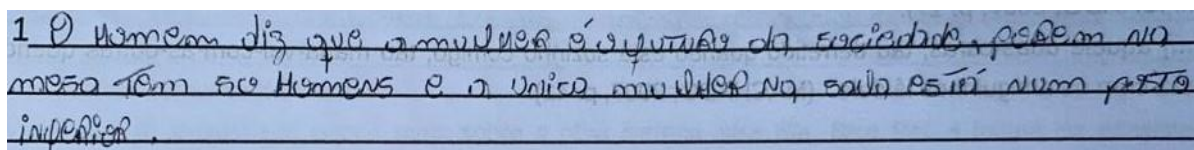 1 O Homem diz que a mulher é o futuro da sociedade, porem na
mesa Tem só Homens e a unica mulher na sala está num posto
inferior.